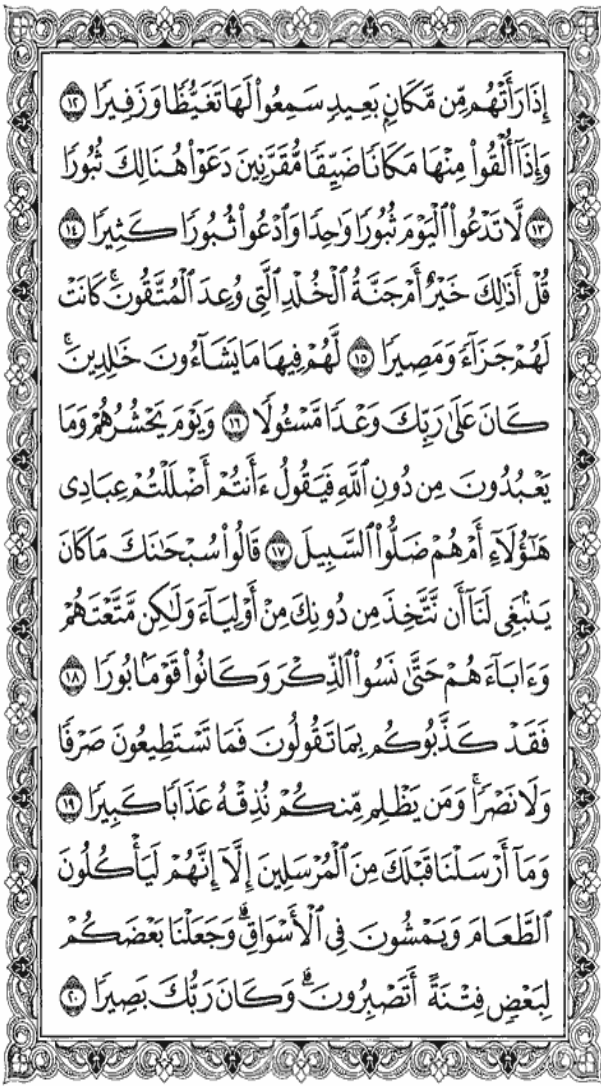 إِذَا رَأَتْهُم مِّن مَّكَانٍۭ بَعِيدٍ سَمِعُوا۟ لَهَا تَغَيُّظًا وَزَفِيرًا ١٢
وَإِذَآ أُلْقُوا۟ مِنْهَا مَكَانًا ضَيِّقًا مُّقَرَّنِينَ دَعَوْا۟ هُنَالِكَ ثُبُورًا
١٣ لَّا تَدْعُوا۟ ٱلْيَوْمَ ثُبُورًا وَٰحِدًا وَٱدْعُوا۟ ثُبُورًا كَثِيرًا ١٤
قُلْ أَذَٰلِكَ خَيْرٌ أَمْ جَنَّةُ ٱلْخُلْدِ ٱلَّتِى وُعِدَ ٱلْمُتَّقُونَ ۚ كَانَتْ
لَهُمْ جَزَآءً وَمَصِيرًا ١٥ لَّهُمْ فِيهَا مَا يَشَآءُونَ خَٰلِدِينَ ۚ
كَانَ عَلَىٰ رَبِّكَ وَعْدًا مَّسْـُٔولًا ١٦ وَيَوْمَ يَحْشُرُهُمْ وَمَا
يَعْبُدُونَ مِن دُونِ ٱللَّهِ فَيَقُولُ ءَأَنتُمْ أَضْلَلْتُمْ عِبَادِى
هَٰٓؤُلَآءِ أَمْ هُمْ ضَلُّوا۟ ٱلسَّبِيلَ ١٧ قَالُوا۟ سُبْحَٰنَكَ مَا كَانَ
يَنۢبَغِى لَنَآ أَن نَّتَّخِذَ مِن دُونِكَ مِنْ أَوْلِيَآءَ وَلَٰكِن مَّتَّعْتَهُمْ
وَءَابَآءَهُمْ حَتَّىٰ نَسُوا۟ ٱلذِّكْرَ وَكَانُوا۟ قَوْمًۢا بُورًا ١٨
فَقَدْ كَذَّبُوكُم بِمَا تَقُولُونَ فَمَا تَسْتَطِيعُونَ صَرْفًا
وَلَا نَصْرًا ۚ وَمَن يَظْلِم مِّنكُمْ نُذِقْهُ عَذَابًا كَبِيرًا ١٩
وَمَآ أَرْسَلْنَا قَبْلَكَ مِنَ ٱلْمُرْسَلِينَ إِلَّآ إِنَّهُمْ لَيَأْكُلُونَ
ٱلطَّعَامَ وَيَمْشُونَ فِى ٱلْأَسْوَاقِ ۗ وَجَعَلْنَا بَعْضَكُمْ
لِبَعْضٍ فِتْنَةً أَتَصْبِرُونَ ۗ وَكَانَ رَبُّكَ بَصِيرًا ٢٠